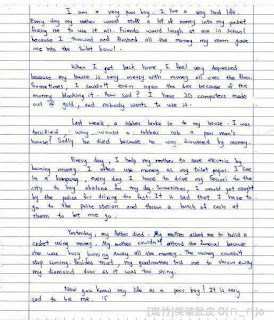 I am a very poor boy. I live a very hard life.
Every day my mother would stuff a lot of money into my pocket
forcing me to use it all. Friends would laugh at me in school
because I throwed and flushed all the money my mum gave
me into the toilet bowl.
When I got back home I feel very depressed
because my house is very messy with money all over the floor.
Sometimes I couldn't even open the door because of the
money blocking it. How sad? I have 10 computers made
out of gold, and nobody wants to use it.
Last week, a robber broke in to my house. I was
terrified. why would a robber rob a poor man's
house? Sadly he died because he was drowned by money.
Every day, I help my mother to save electric by
burning money. I often use money as my toilet paper. I live
in a kampung, every day I have to drive my Ferrari to the
city to buy abalone for my dog. Sometimes, I would get caught
by the police for driving too fast. It is sad that I have to
go to the police station and throw a bunch of cash at
them to let me go.
Yesterday, my father died. My mother asked me to build a
casket using money. My mother couldn't attend the funeral because
she was busy burning away all the money. The money couldn't
stop coming. Besides that my grandmother told me to throw away
my diamond door as it was too shiny.
Now you know my life as a poor boy! It is very
sad to be me. :(